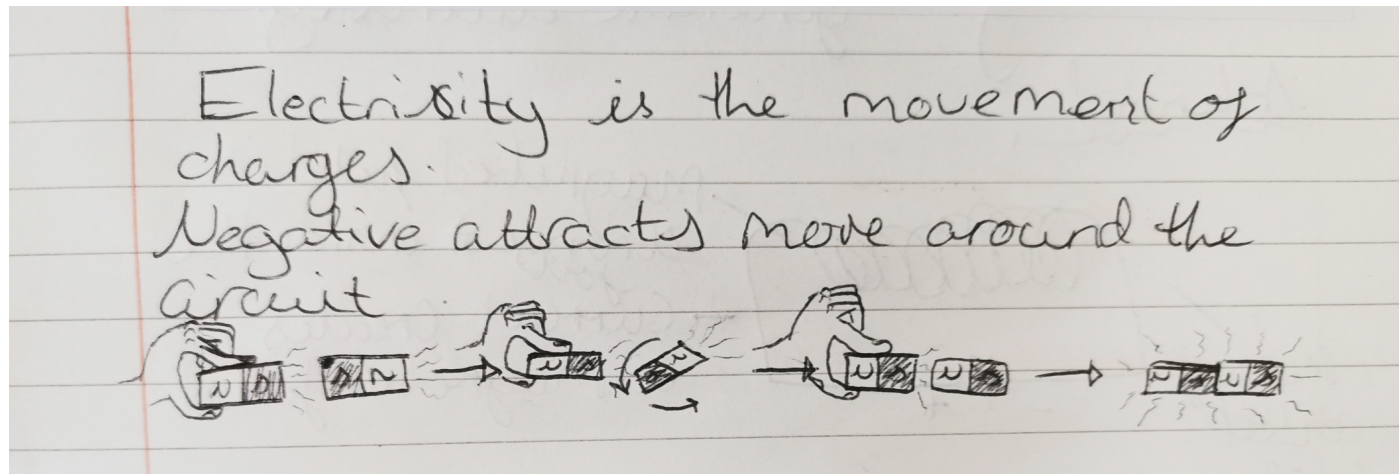 Electrisity is the movement of
charges.
Negative attracts move around the
circuit